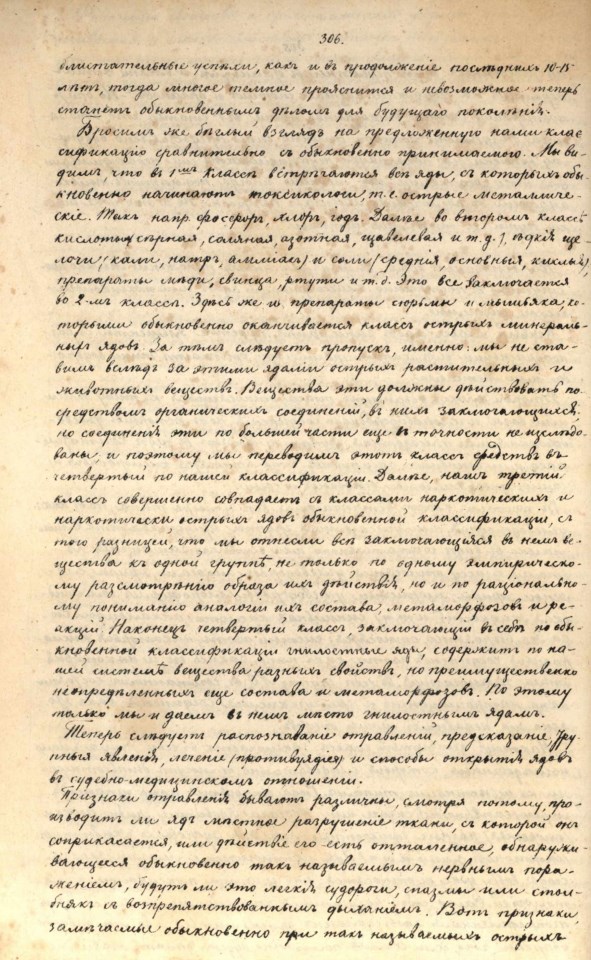 306.
блистательные успѣхи, какъ и въ продолженіе послѣднихъ 10-15
лѣтъ, тогда многое темное прояснится и невозможное теперь
станетъ обыкновеннымъ дѣломъ для будущаго поколѣнія.
Бросимъ же бѣглый взглядъ на предложенную нами клас
сификацію сравнительно съ обыкновенно принимаемою. Мы ви-
димъ, что въ 1мъ классѣ встрѣчаются всѣ яды, съ которыхъ обы-
кновенно начинаютъ токсикологи, т. е. острые металличе-
скіе. Такъ напр. фосфоръ, хлоръ, іодъ. Далѣе во второмъ классѣ
кислоты, сѣрная, соляная, азотная, щавелевая и т. д.), ѣдкія ще
лочи, (кали, натръ, амміакъ) и соли (среднія, основныя, кислыя),
препараты мѣди, свинца, ртути и т. д. Это все заключается
во 2-мъ классѣ. Здѣсь же и препараты сюрьмы и мышьяка, ко-
торыми обыкновенно оканчивается классъ острыхъ минераль-
ныхъ ядовъ. За тѣмъ слѣдуетъ пропускъ, именно: мы не ста-
вимъ вслѣдъ за этими ядами острыхъ растительныхъ и
животныхъ веществъ. Вещества эти должны дѣйствовать по-
средствомъ органическихъ соединеній, въ нихъ заключающихся:
но соединенія эти по большей части еще въ точности не изслѣдо-
ваны, и поэтому мы переводимъ этотъ классъ средствъ въ
четвертый по нашей классификаціи. Далѣе, нашъ третій
классъ совершенно совпадаетъ съ классами наркотическихъ и
наркотически острыхъ ядовъ обыкновенной классификаціи, съ
того разницей, что мы отнесли всѣ заключающіяся въ немъ ве-
щества къ одной группѣ, не только по одному эмпирическо-
му разсмотрѣнію образа ихъ дѣйствія, но и по раціонально-
му пониманію аналогіи ихъ состава, метаморфозовъ и ре-
акцій. Наконецъ четвертый классъ, заключающій въ себѣ по обы-
кновенной классификаціи гнилостные яды, содержитъ по на-
шей системѣ вещества разныхъ свойствъ, но преимущественно
неопредѣленныхъ еще состава и метаморфозовъ. По этому
только мы и даемъ въ немъ мѣсто гнилостнымъ ядамъ.
Теперь слѣдуетъ распознаваніе отравленій, предсказаніе, тру
пныя явленія, леченіе (противуядія) и способы открытія ядовъ
въ судебно-медицинскомъ отношеніи.
Признаки отравленія бываютъ различны, смотря потому, про-
изводитъ ли ядъ мѣстное разрушеніе ткани, съ которой онъ
соприкасается, или дѣйствіе его есть отдаленное, обнаружи-
вающееся обыкновенно такъ называемымъ нервнымъ пора-
женіемъ, будутъ ли это легкія судороги, спазмы или стол-
бнякъ съ возпрепятствованнымъ дыханіемъ. Вотъ признаки,
замѣчаемые обыкновенно при такъ называемыхъ острыхъ